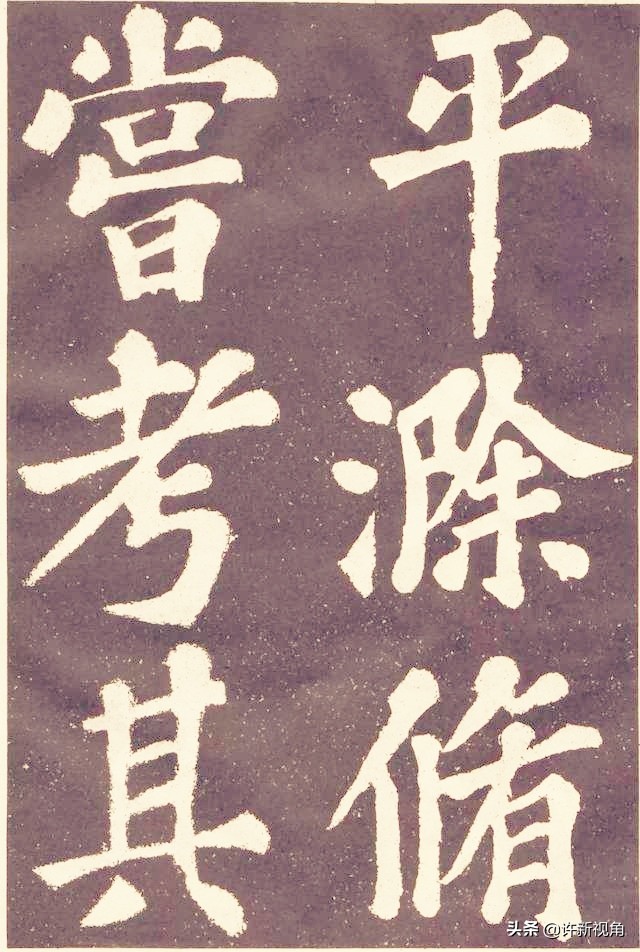 平滁脩
嘗考其
头条 @许新视角